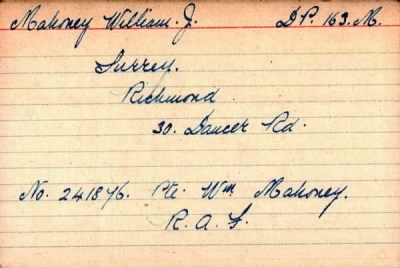 Mahoney William. J. D P. 163. M.
Surrey.
Richmond.
30. Dancer Rd.
No. 241876. Pte. Wm Mahoney.
R. A. F.